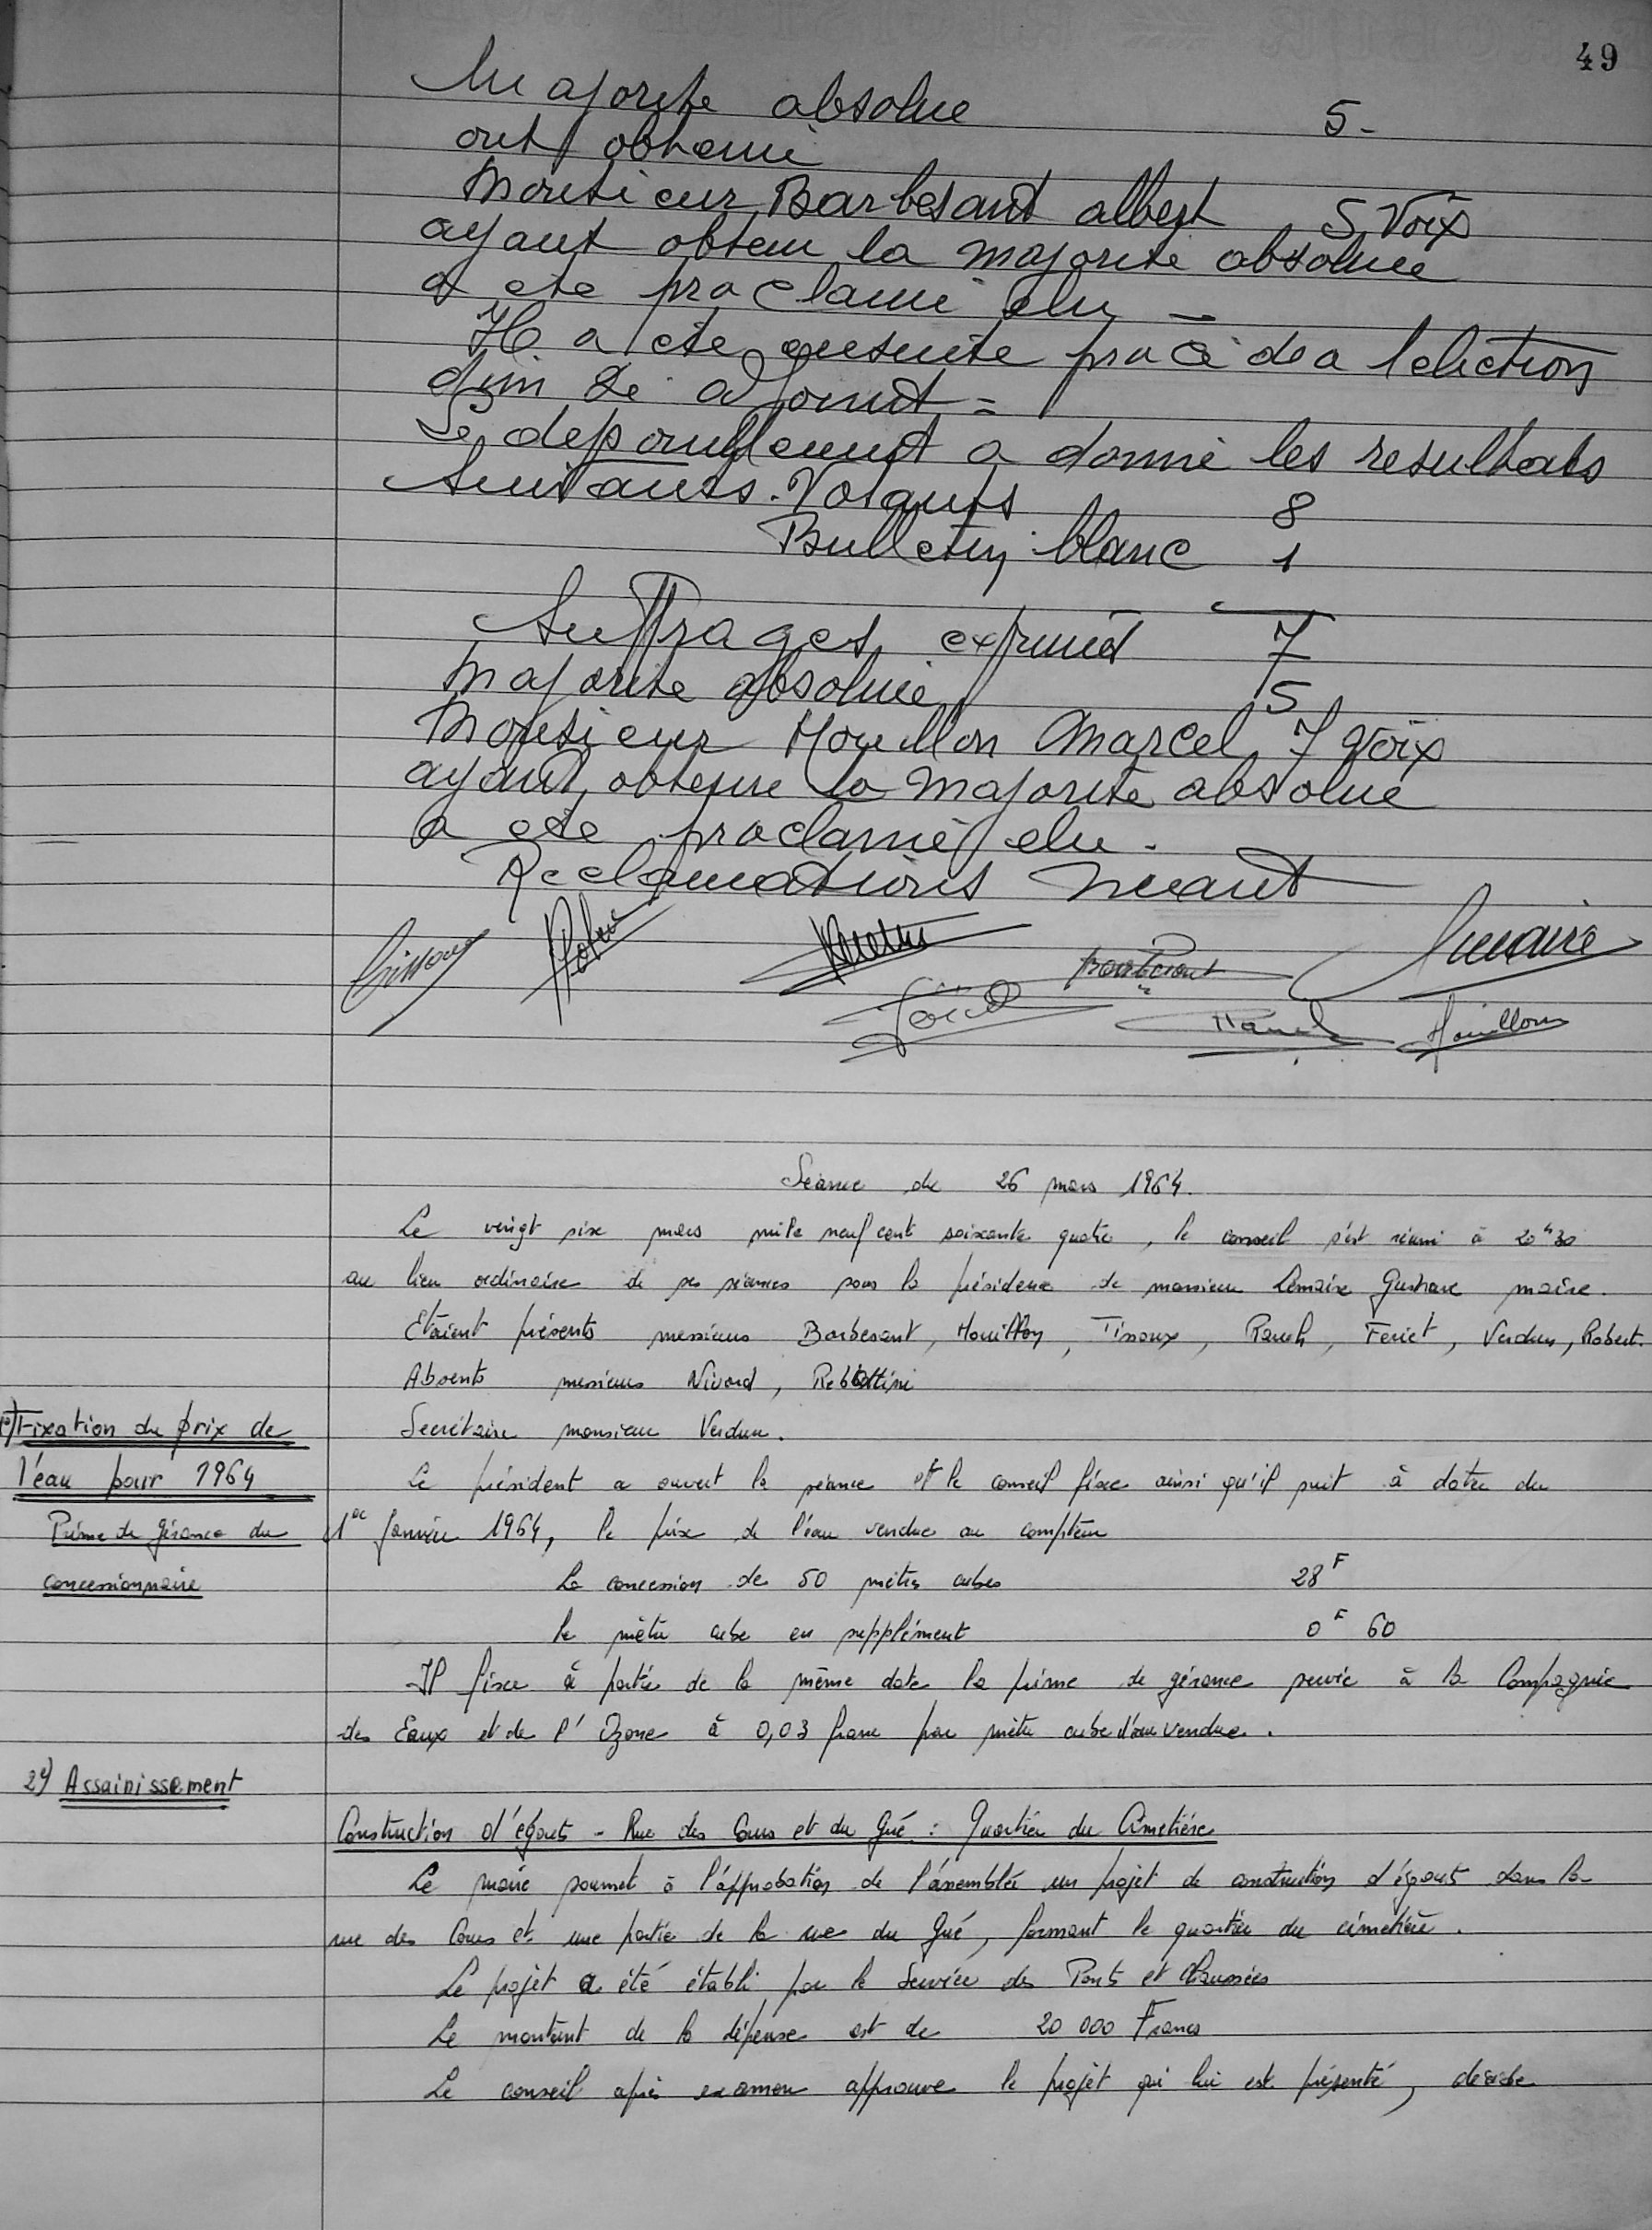 49
Majorite absolue 5-
ont obtenu
Monsieur Barbesant albert 5 Voix
ayant obtenu la majorite absolue
a ete proclamé elu -
Il a ete ensuite procéde a l election
d'un 2e adjoint =
Le depouillement a donné les resultats
Suivants. Votants 8
Bulletin blanc 1
Suffrages exprimés 7
Majorite absolue 5
Monsieur Houillon Marcel 7 voix
ayant obtenue la majorité absolue
a ete proclamé elu.
Reclamations neant
Lemaire
Houillon
Séance du 26 mars 1964.
Le vingt six mars mile neuf cent soixante quatre, le conseil s'est réuni à 20h30
au lieu ordinaire de ses séances sous la présidence de monsieur Lemaire Gustave maire.
Etaient présents messieurs Barbesant, Houillon, Tissoux, Rauch, Feriet, Verdun, Robert.
Absents messieurs Nivard, Rebbottini
Secrétaire monsieur Verdun.
1°) Fixation du prix de
l'eau pour 1964
Prime de gérance du
concessionnaire
Le président a ouvert la séance et le conseil fixe ainsi qu'il suit à dater du
1er Janvier 1964, le prix de l'eau vendue au compteur
La concession de 50 mètres cubes 28F
le mètre cube en supplément 0F 60
Il fixe à partir de la même date la prime de gérance servie à la Compagnie
des Eaux et de l'Ozone à 0,03 franc par mètre cube d'eau vendue.
2°) Assainissement
Construction d'égouts - Rue des Cours et du Gué : Quartier du Cimetière
Le maire soumet à l'approbation de l'assemblée un projet de construction d'égouts dans la
rue des Cours et une partie de la rue du Gué, formant le quartier du cimetière.
Le projet a été établi par le Service des Ponts et Chaussées
Le montant de la dépense est de 20 000 Francs
Le conseil après examen approuve le projet qui lui est présenté, décide